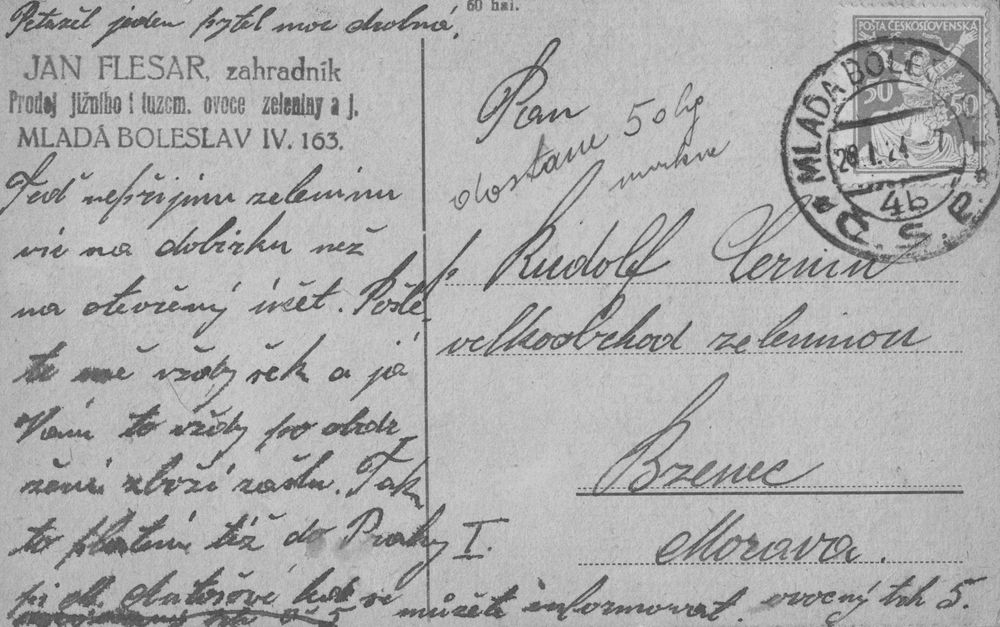 60 hal.
Petržel jeden pytel moc drobná.
JAN FLESAR, zahradník
Prodej jižního i tuzem. ovoce zeleniny a j.
MLADÁ BOLESLAV IV. 163.
Teď nepřijmu zeleninu
víc na dobírku než
na otevřený účet. Pošle-
te mě vždy šek a já
Vám to vždy po obdr-
žení zboží zašlu. Tak
to platím též do Prahy I.
pí
kde se můžete informovat. ovocný trh 5.
Pan
dostane 50 kg
mrkve
p. Rudolf Černín
velkoobchod zeleninou
Bzenec
Morava.
POŠTA ČESKOSLOVENSKÁ
50 50
MLADÁ BOLESLAV
4b
Č.S.P.